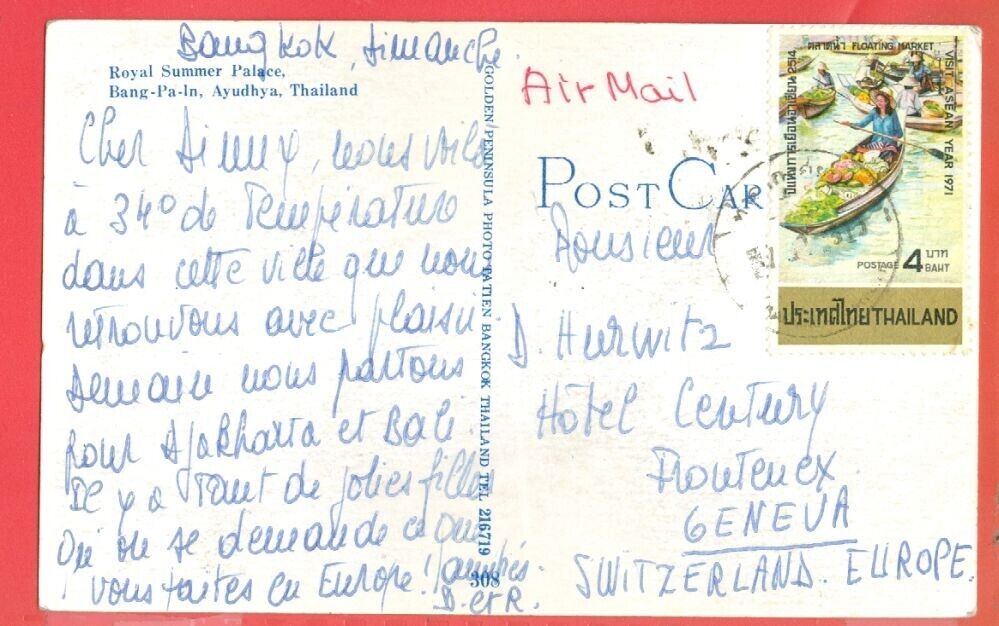 Bangkok, dimanche.
Royal Summer Palace,
Bang-Pa-In, Ayudhya, Thailand
Cher Dimmy, nous voilà
à 34° de température
dans cette ville que nous
retrouvons avec plaisir.
Demain nous partons
pour Djakharta et Bali.
Il y a tant de jolies filles
qu'on se demande ce que
vous faites en Europe! amitiés.
D. et R.
GOLDEN PENINSULA PHOTO TATIEN BANGKOK THAILAND TEL 216719
308
Air Mail
POST CAR
Monsieur
D. Hurwitz
Hôtel Century
Frontenex
GENEVA
SWITZERLAND. EUROPE.
ตลาดน้ำ FLOATING MARKET
VISIT ASEAN YEAR 1971
ปีแห่งการเยือนอาเซียน 2514
POSTAGE 4 บาท BAHT
ประเทศไทย THAILAND